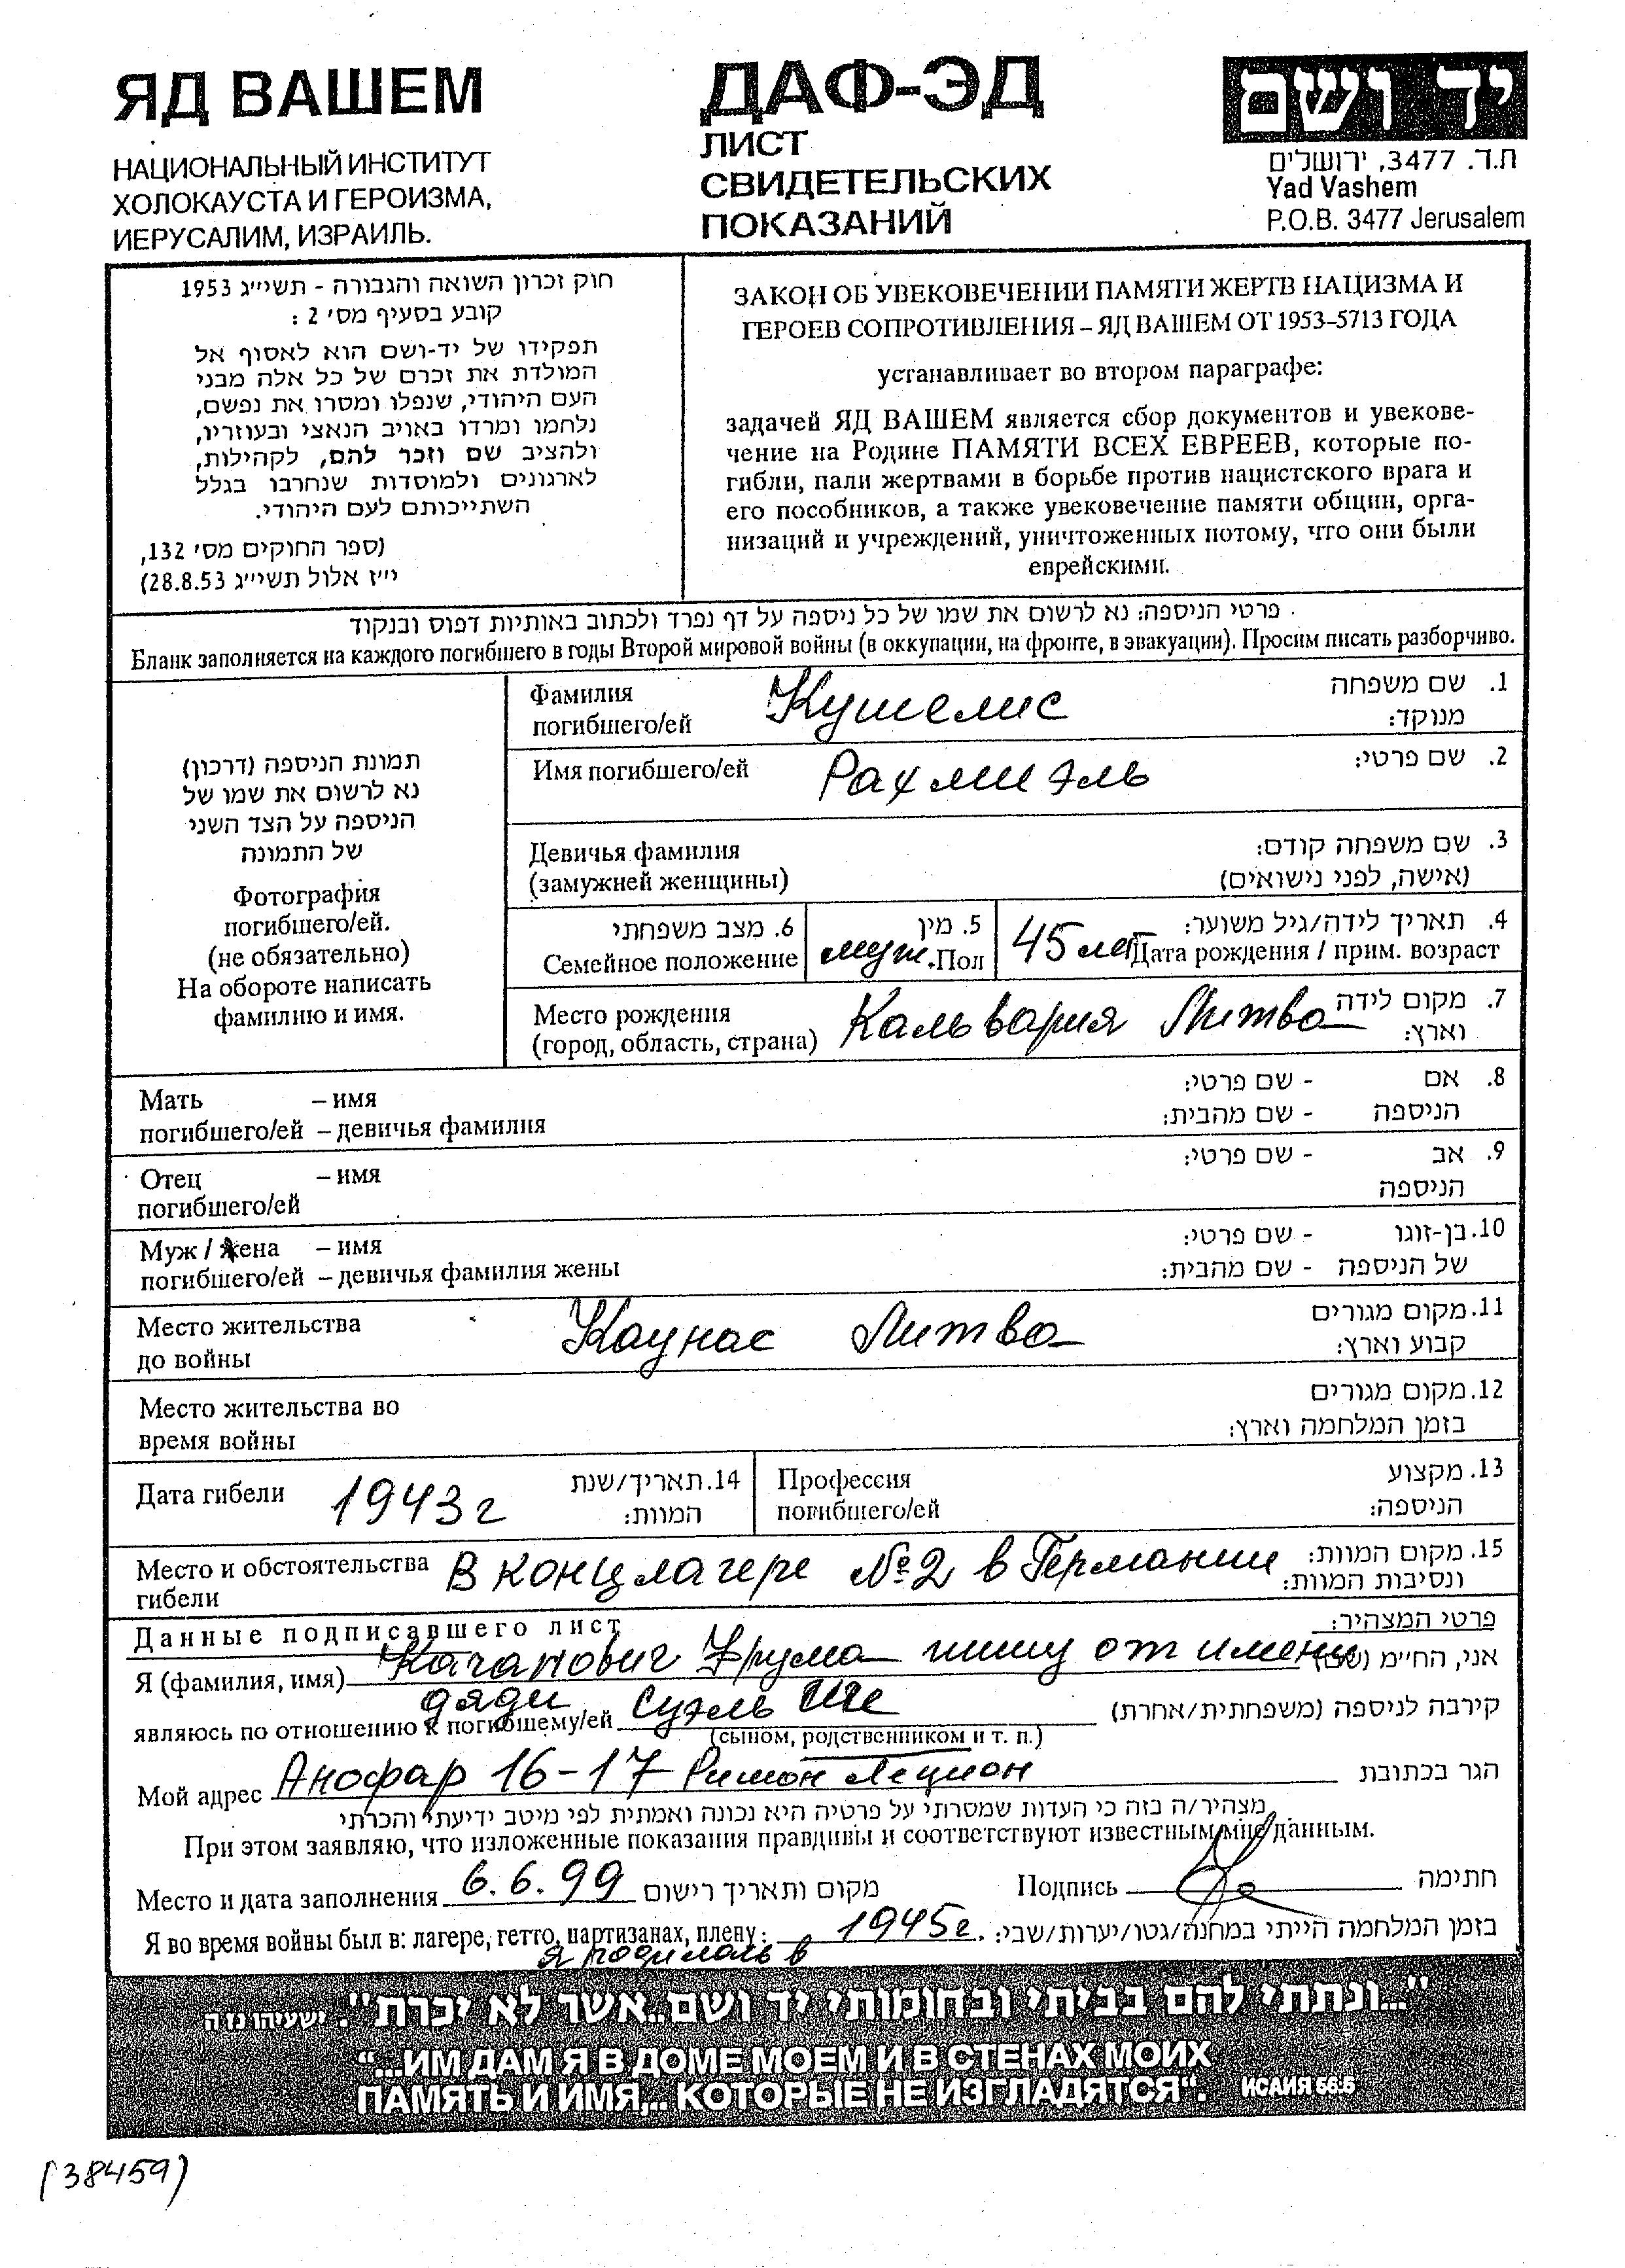 ЯД ВАШЕМ
НАЦИОНАЛЬНЫЙ ИНСТИТУТ
ХОЛОКАУСТА И ГЕРОИЗМА,
ИЕРУСАЛИМ, ИЗРАИЛЬ.
ДАФ-ЭД
ЛИСТ
СВИДЕТЕЛЬСКИХ
ПОКАЗАНИЙ
יד ושם
ת.ד. 3477, ירושלים
Yad Vashem
P.O.B. 3477 Jerusalem
חוק זכרון השואה והגבורה - תשי״ג 1953
קובע בסעיף מס׳ 2 :
תפקידו של יד-ושם הוא לאסוף אל
המולדת את זכרם של כל אלה מבני
העם היהודי, שנפלו ומסרו את נפשם,
נלחמו ומרדו באויב הנאצי ובעוזריו,
ולהציב שם וזכר להם, לקהילות,
לארגונים ולמוסדות שנחרבו בגלל
השתייכותם לעם היהודי.
(ספר החוקים מס׳ 132,
י״ז אלול תשי״ג 28.8.53)
ЗАКОН ОБ УВЕКОВЕЧЕНИИ ПАМЯТИ ЖЕРТВ НАЦИЗМА И
ГЕРОЕВ СОПРОТИВЛЕНИЯ – ЯД ВАШЕМ ОТ 1953–5713 ГОДА
устанавливает во втором параграфе:
задачей ЯД ВАШЕМ является сбор документов и увекове-
чение на Родине ПАМЯТИ ВСЕХ ЕВРЕЕВ, которые по-
гибли, пали жертвами в борьбе против нацистского врага и
его пособников, а также увековечение памяти общин, орга-
низаций и учреждений, уничтоженных потому, что они были
еврейскими.
פרטי הניספה: נא לרשום את שמו של כל ניספה על דף נפרד ולכתוב באותיות דפוס ובנקוד
Бланк заполняется на каждого погибшего в годы Второй мировой войны (в оккупации, на фронте, в эвакуации). Просим писать разборчиво.
תמונת הניספה (דרכון)
נא לרשום את שמו של
הניספה על הצד השני
של התמונה
Фотография
погибшего/ей.
(не обязательно)
На обороте написать
фамилию и имя.
Фамилия Кушелис 1. שם משפחה
погибшего/ей מנוקד:
Имя погибшего/ей Рахмиэль 2. שם פרטי:
Девичья фамилия 3. שם משפחה קודם:
(замужней женщины) (אישה, לפני נישואים)
6. מצב משפחתי 5. מין 4. תאריך לידה/גיל משוער:
Семейное положение муж. Пол 45 лет Дата рождения / прим. возраст
Место рождения Кальвария Литва 7. מקום לידה
(город, область, страна) וארץ:
Мать – имя 8. אם - שם פרטי:
погибшего/ей – девичья фамилия הניספה - שם מהבית:
Отец – имя 9. אב - שם פרטי:
погибшего/ей הניספה
Муж / жена – имя 10. בן-זוגו - שם פרטי:
погибшего/ей – девичья фамилия жены של הניספה - שם מהבית:
Место жительства Каунас Литва 11. מקום מגורים
до войны קבוע וארץ:
Место жительства во 12. מקום מגורים
время войны בזמן המלחמה וארץ:
Дата гибели 1943 г 14. תאריך/שנת המוות:
Профессия 13. מקצוע
погибшего/ей הניספה:
Место и обстоятельства В концлагере №2 в Германии 15. מקום המוות:
гибели ונסיבות המוות:
Данные подписавшего лист פרטי המצהיר:
Я (фамилия, имя) Качанович Фрума пишу от имени אני, החי״מ
дяди
являюсь по отношению к погибшему/ей קירבה לניספה (משפחתית/אחרת)
(сыном, родственником и т. п.)
Мой адрес Анофар 16-17 Ришон Лецион הגר בכתובת
מצהיר/ה בזה כי העדות שמסרתי על פרטיה היא נכונה ואמתית לפי מיטב ידיעתי והכרתי
При этом заявляю, что изложенные показания правдивы и соответствуют известным мне данным.
Место и дата заполнения 6.6.99 מקום ותאריך רישום Подпись חתימה
Я во время войны был в: лагере, гетто, партизанах, плену: 1945г. בזמן המלחמה הייתי במחנה/גטו/יערות/שבי:
Я родилась в
"...ונתתי להם בביתי ובחומותי יד ושם..אשר לא יכרת". ישעיהו נו ה
“...ИМ ДАМ Я В ДОМЕ МОЕМ И В СТЕНАХ МОИХ
ПАМЯТЬ И ИМЯ... КОТОРЫЕ НЕ ИЗГЛАДЯТСЯ“. ИСАИЯ 56:5
(38459)